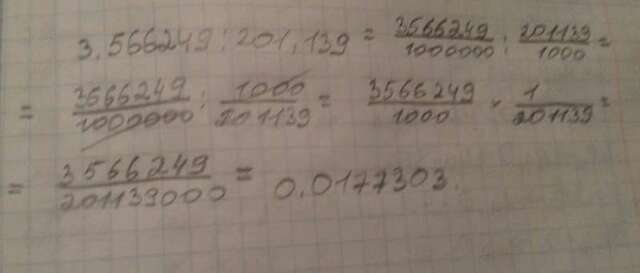 3.566249 : 201,139 = 3566249/1000000 : 201139/1000 =
= 3566249/1000000 : 1000/201139 = 3566249/1000 · 1/201139 =
= 3566249/201139000 = 0.0177303.